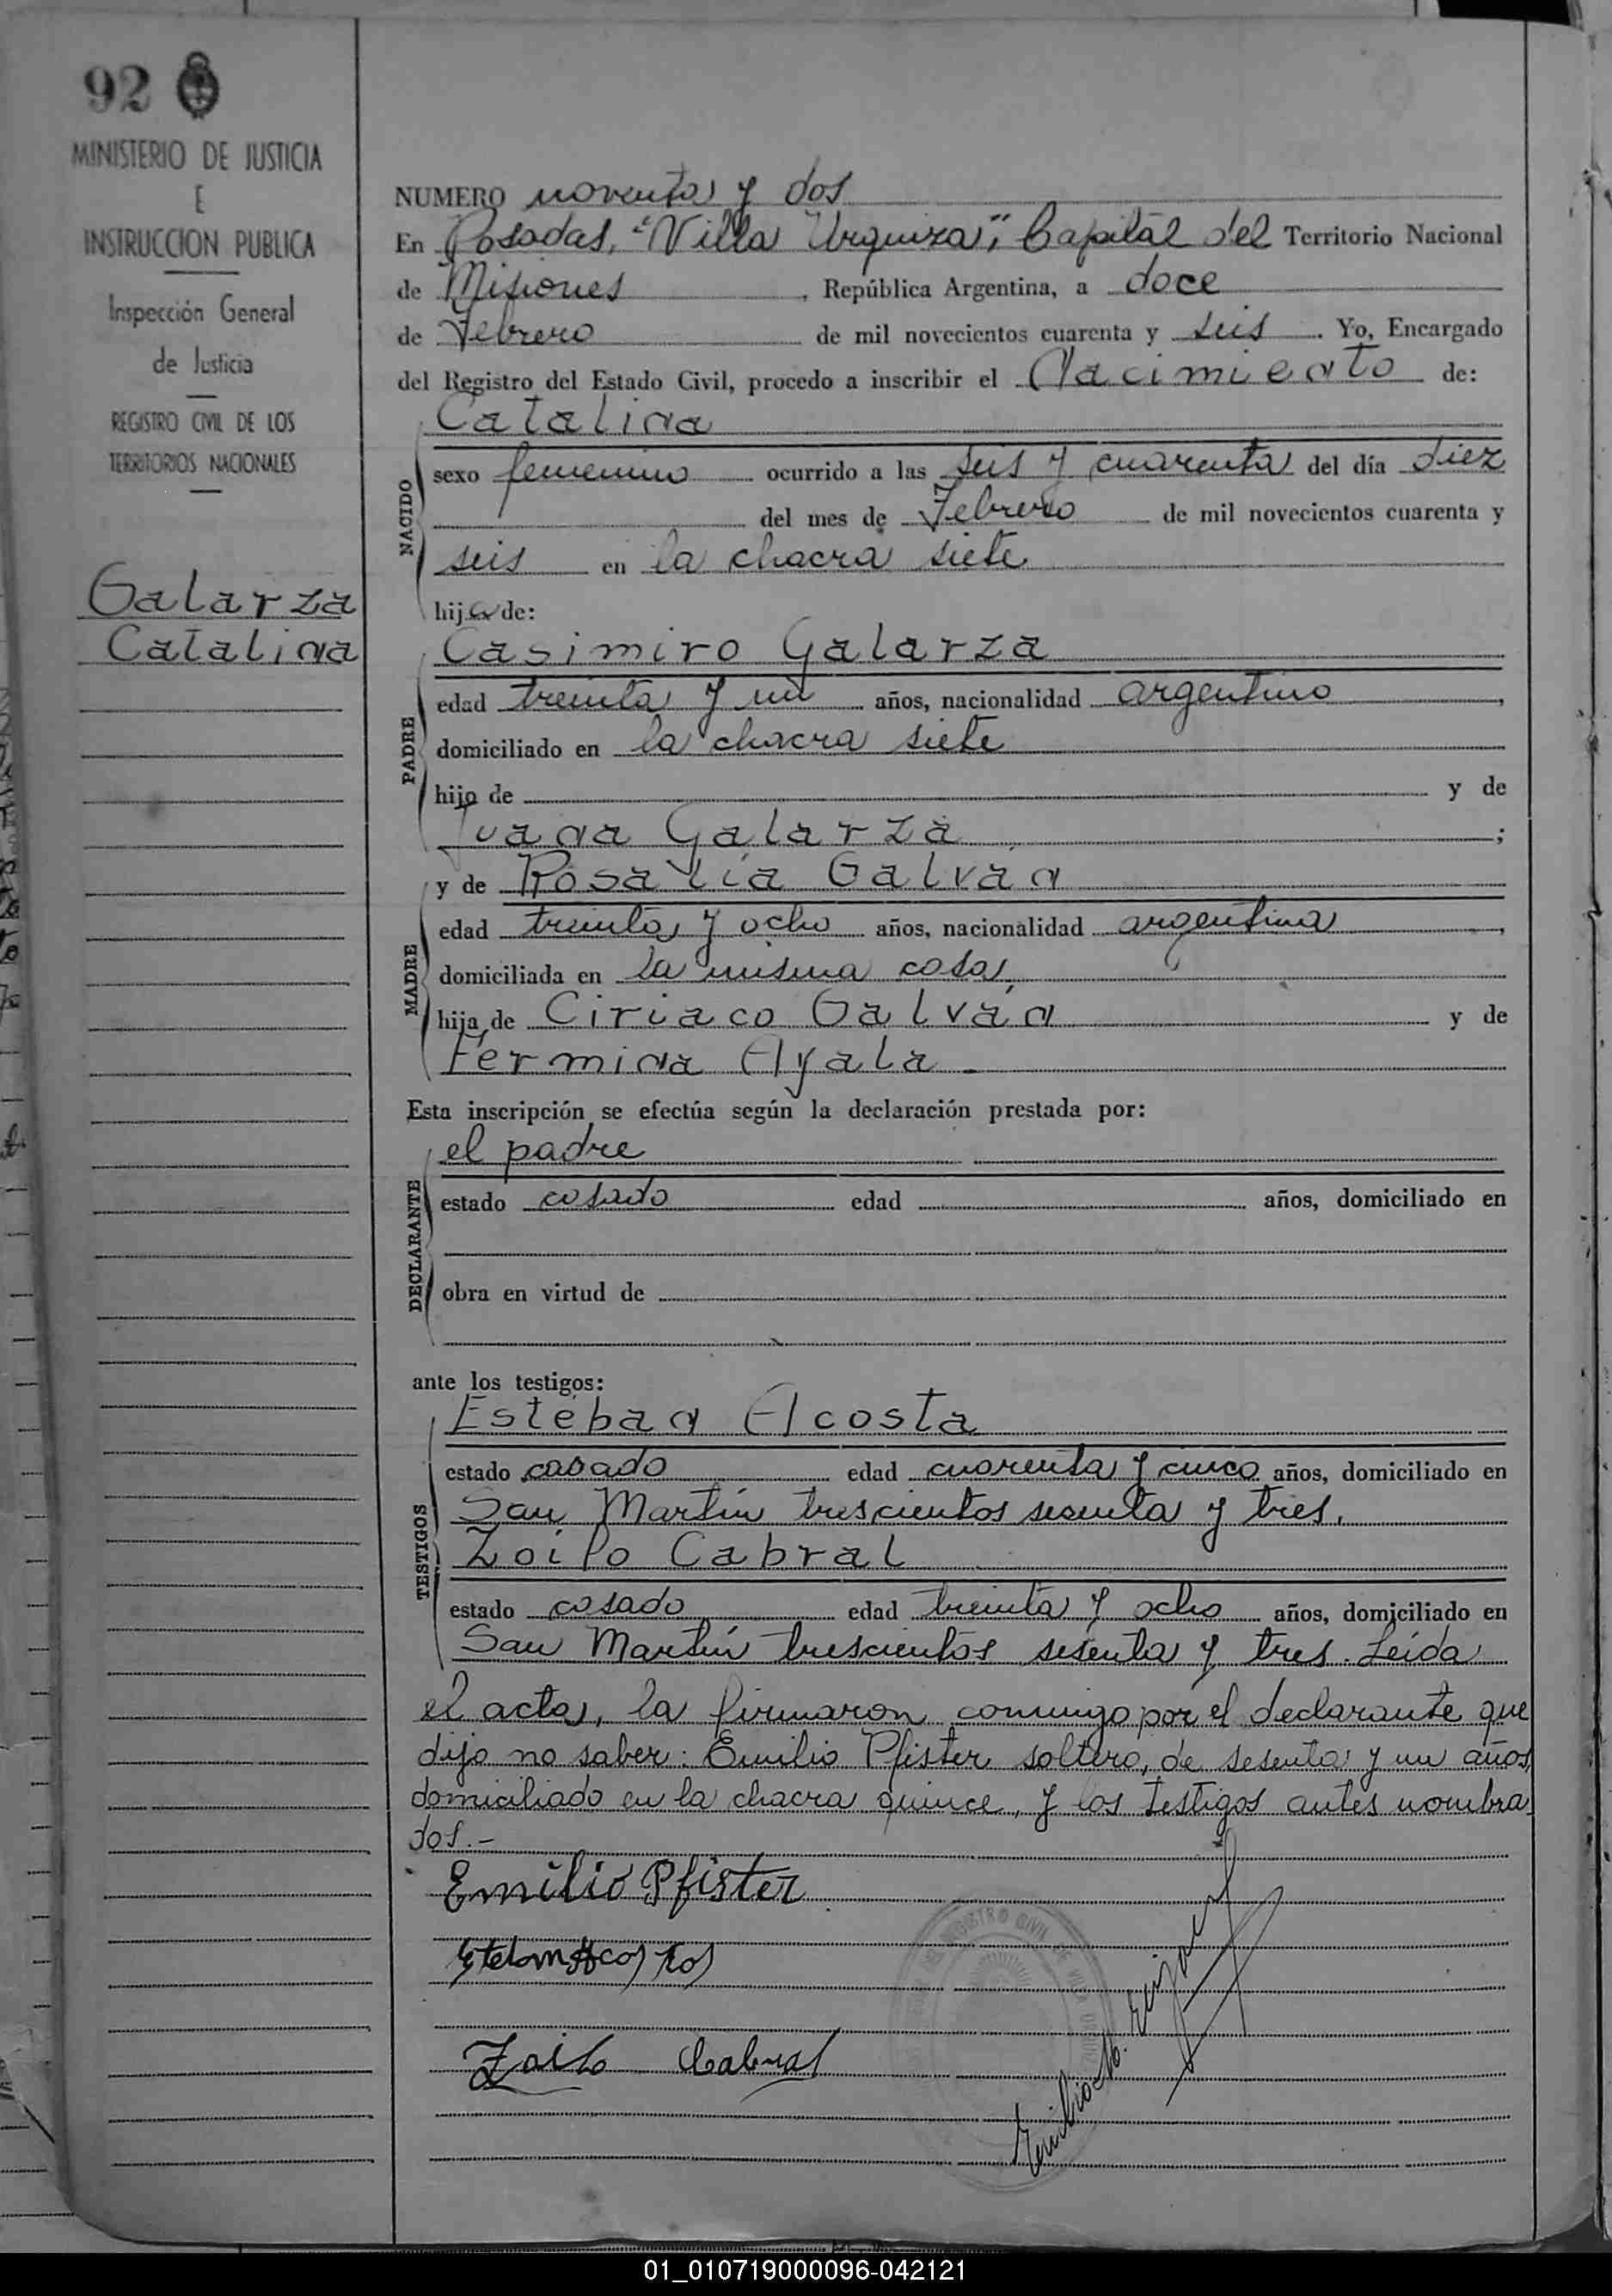 92
MINISTERIO DE JUSTICIA
E
INSTRUCCION PUBLICA
Inspección General
de Justicia
REGISTRO CIVIL DE LOS
TERRITORIOS NACIONALES
Galarza
Catalina
NUMERO noventa y dos
En Posadas, "Villa Urquiza", Capital del Territorio Nacional
de Misiones, República Argentina, a doce
de Febrero de mil novecientos cuarenta y seis. Yo, Encargado
del Registro del Estado Civil, procedo a inscribir el Nacimiento de:
NACIDO
Catalina
sexo femenino ocurrido a las seis y cuarenta del día diez
del mes de Febrero de mil novecientos cuarenta y
seis en la chacra siete
hija de:
PADRE
Casimiro Galarza
edad treinta y un años, nacionalidad argentino,
domiciliado en la chacra siete
hijo de y de
Juana Galarza;
MADRE
y de Rosalía Galván
edad treinta y ocho años, nacionalidad argentina,
domiciliada en la misma casa,
hija de Ciriaco Galván y de
Fermina Ayala -
Esta inscripción se efectúa según la declaración prestada por:
DECLARANTE
el padre
estado casado edad años, domiciliado en
obra en virtud de
ante los testigos:
TESTIGOS
Esteban Acosta
estado casado edad cuarenta y cinco años, domiciliado en
San Martín trescientos sesenta y tres.
Zoilo Cabral
estado casado edad treinta y ocho años, domiciliado en
San Martín trescientos sesenta y tres. Leída
el acta, la firmaron conmigo por el declarante que
dijo no saber: Emilio Pfister, soltero, de sesenta y un años,
domiciliado en la chacra quince, y los testigos antes nombra
dos.-
Emilio Pfister
Zoilo Cabral
REGISTRO CIVIL
01_010719000096-042121